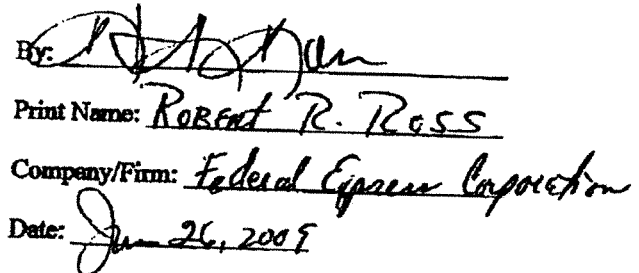 By:
Print Name: ROBERT R. ROSS
Company/Firm: Federal Express Corporation
Date: June 26, 2009